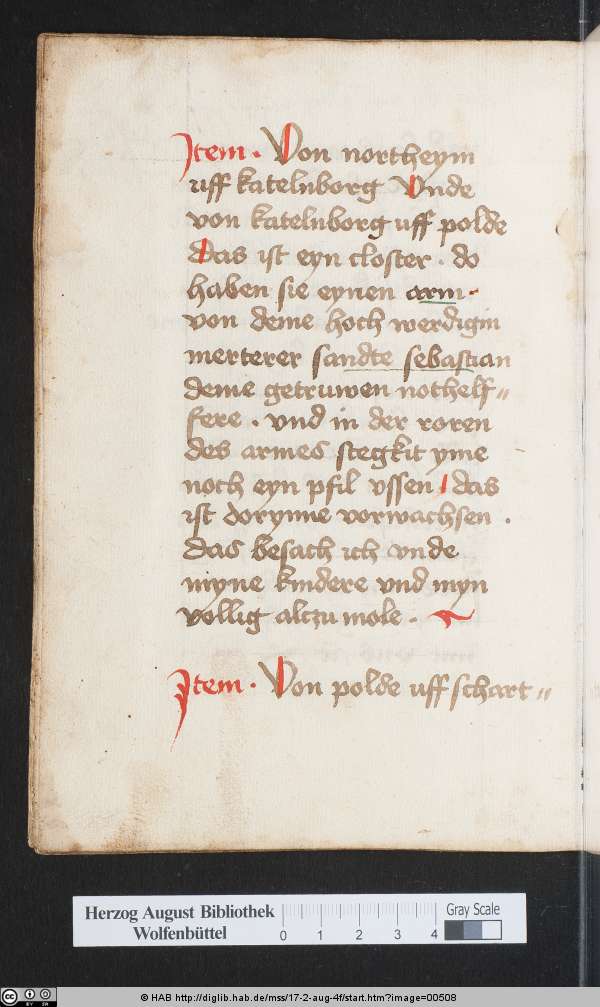 Item. Von northeym
uff katelnborg Vnde
von katelnborg uff polde
Das ist eyn closter. do
haben sie eynen arm.
von deme hoch werdigin
merterer sandte sebastian
deme getruwen nothelf=
fere. vnd in der roren
des armes stegkit yme
noch eyn pfil vssen, das
ist dorynne vorwachsen.
das besach ich vnde
myne kindere vnd myn
vollig alczu mole.
Item. Von polde uff schart=
Herzog August Bibliothek
Wolfenbüttel
0 1 2 3 4
Gray Scale
© HAB http://diglib.hab.de/mss/17-2-aug-4f/start.htm?image=00508